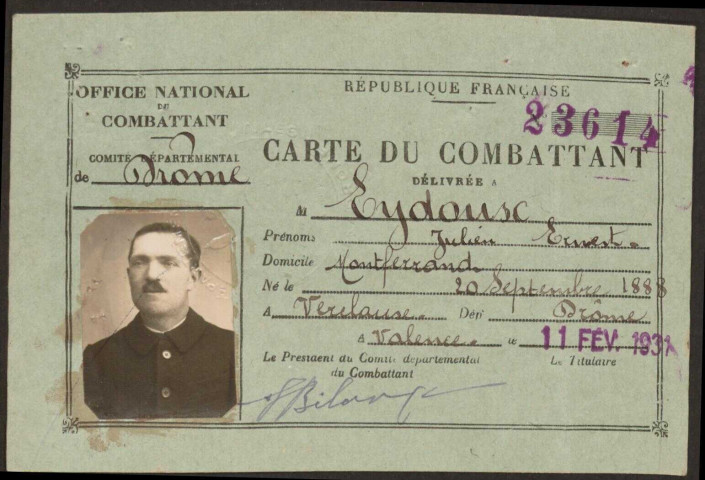 OFFICE NATIONAL
DU
COMBATTANT
COMITÉ DÉPARTEMENTAL
de Drôme
RÉPUBLIQUE FRANÇAISE
23614
CARTE DU COMBATTANT
DÉLIVRÉE A
M Eydoux
Prénoms Julien Ernest
Domicile Montferrand
Né le 20 Septembre 1888
A Verclause Dép^t Drôme
A Valence le 11 FÉV. 1931
Le Président du Comité départemental
du Combattant
Le Titulaire